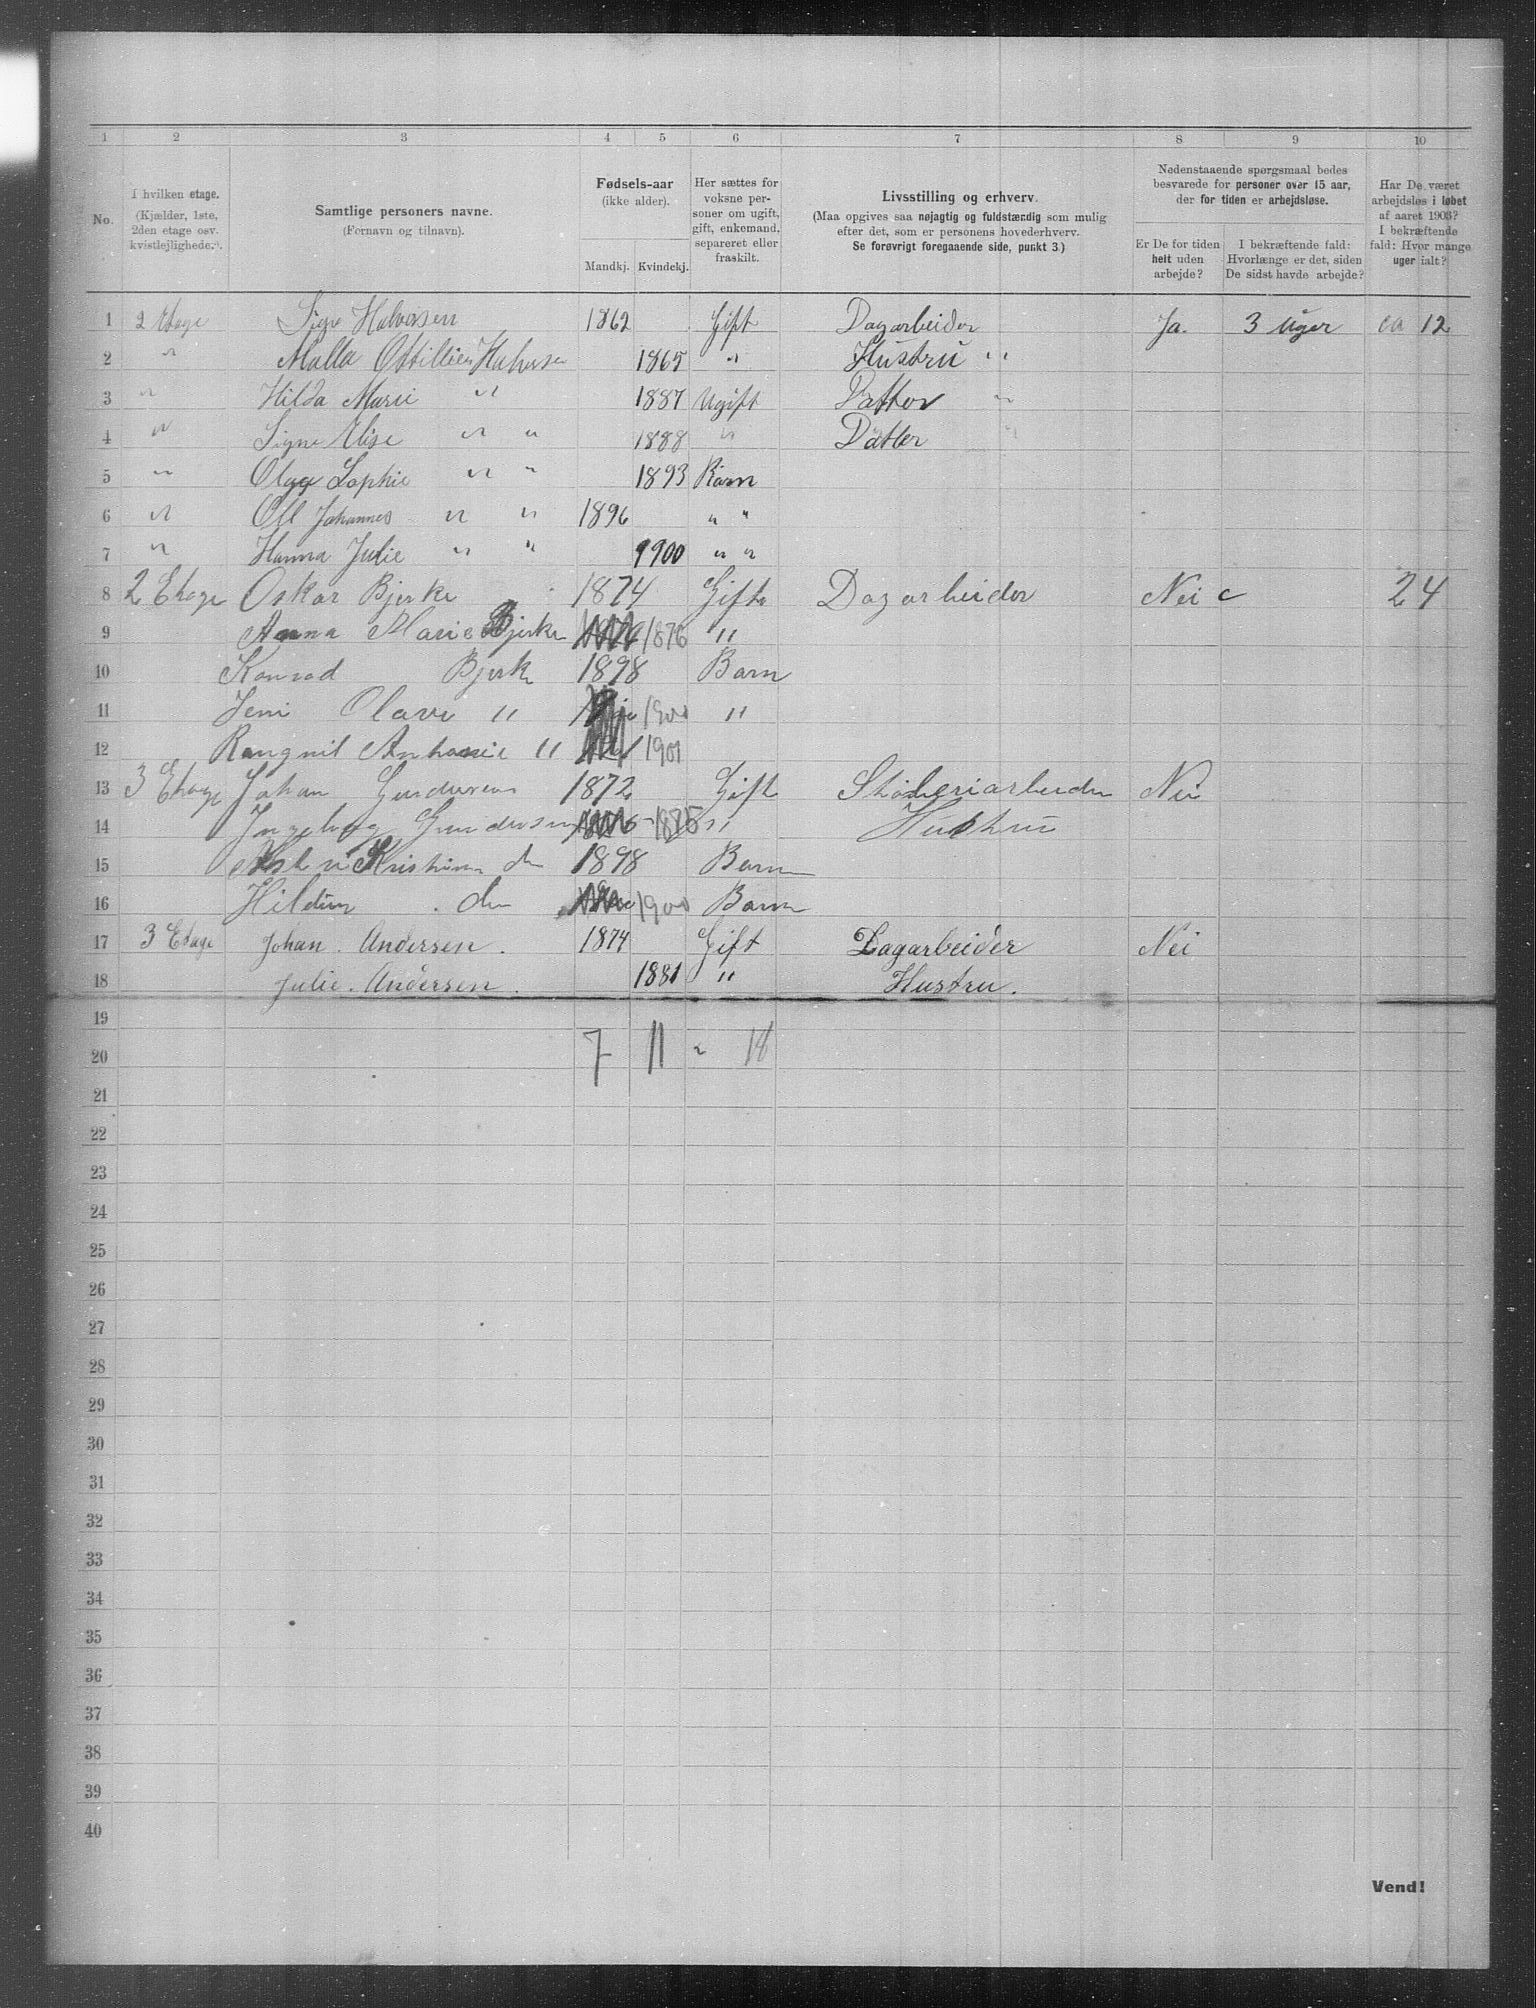 1 2 3 4 5 6 7 8 9 10
No.
I hvilken etage. (Kjælder, 1ste, 2den etage osv. kvistlejlighed.).
Samtlige personers navne. (Fornavn og tilnavn).
Fødsels-aar (ikke alder).
Mandkj. Kvindekj.
Her sættes for voksne personer om ugift, gift, enkemand, separeret eller fraskilt.
Livsstilling og erhverv.
(Maa opgives saa nøjagtig og fuldstændig som mulig efter det, som er personens hovederhverv.
Se forøvrigt foregaaende side, punkt 3.)
Nedenstaaende spørgsmaal bedes besvarede for personer over 15 aar, der for tiden er arbejdsløse.
Er De for tiden helt uden arbejde?
I bekræftende fald: Hvorlænge er det, siden De sidst havde arbejde?
Har De været arbejdsløs i løbet af aaret 1903? I bekræftende fald: Hvor mange uger ialt?
1 2 Etage Halvorsen 1862 Gift Dagarbeider Ja. 3 Uger ca 12
2 " Malla Halvorsen 1865 " Hustru "
3 " Hilda Marie " 1887 Ugift Datter "
4 " Signe Elise " " 1888 " Datter "
5 " Olga Sophie " " 1893 Barn
6 " Johannes " " 1896 " "
7 " Hanna Julie " " 1900 " "
8 2 Etage Oskar Bjerke 1874 Gift Dagarbeider Nei 24
9 Anna Marie Bjerke 1876 "
10 Konrad Bjerke 1898 Barn
11 Jeni Olave " 1900 "
12 Rangnil " 1901
13 3 Etage Johan Gundersen 1872 Gift Nei
14 Ingeborg Gundersen 1875 " Hustru
15 do 1898 Barn
16 do 1900 Barn
17 3 Etage Johan. Andersen. 1874 Gift Dagarbeider Nei
18 Julie. Andersen. 1881 " Hustru.
19
20 7 11 " 18
21
22
23
24
25
26
27
28
29
30
31
32
33
34
35
36
37
38
39
40
Vend!